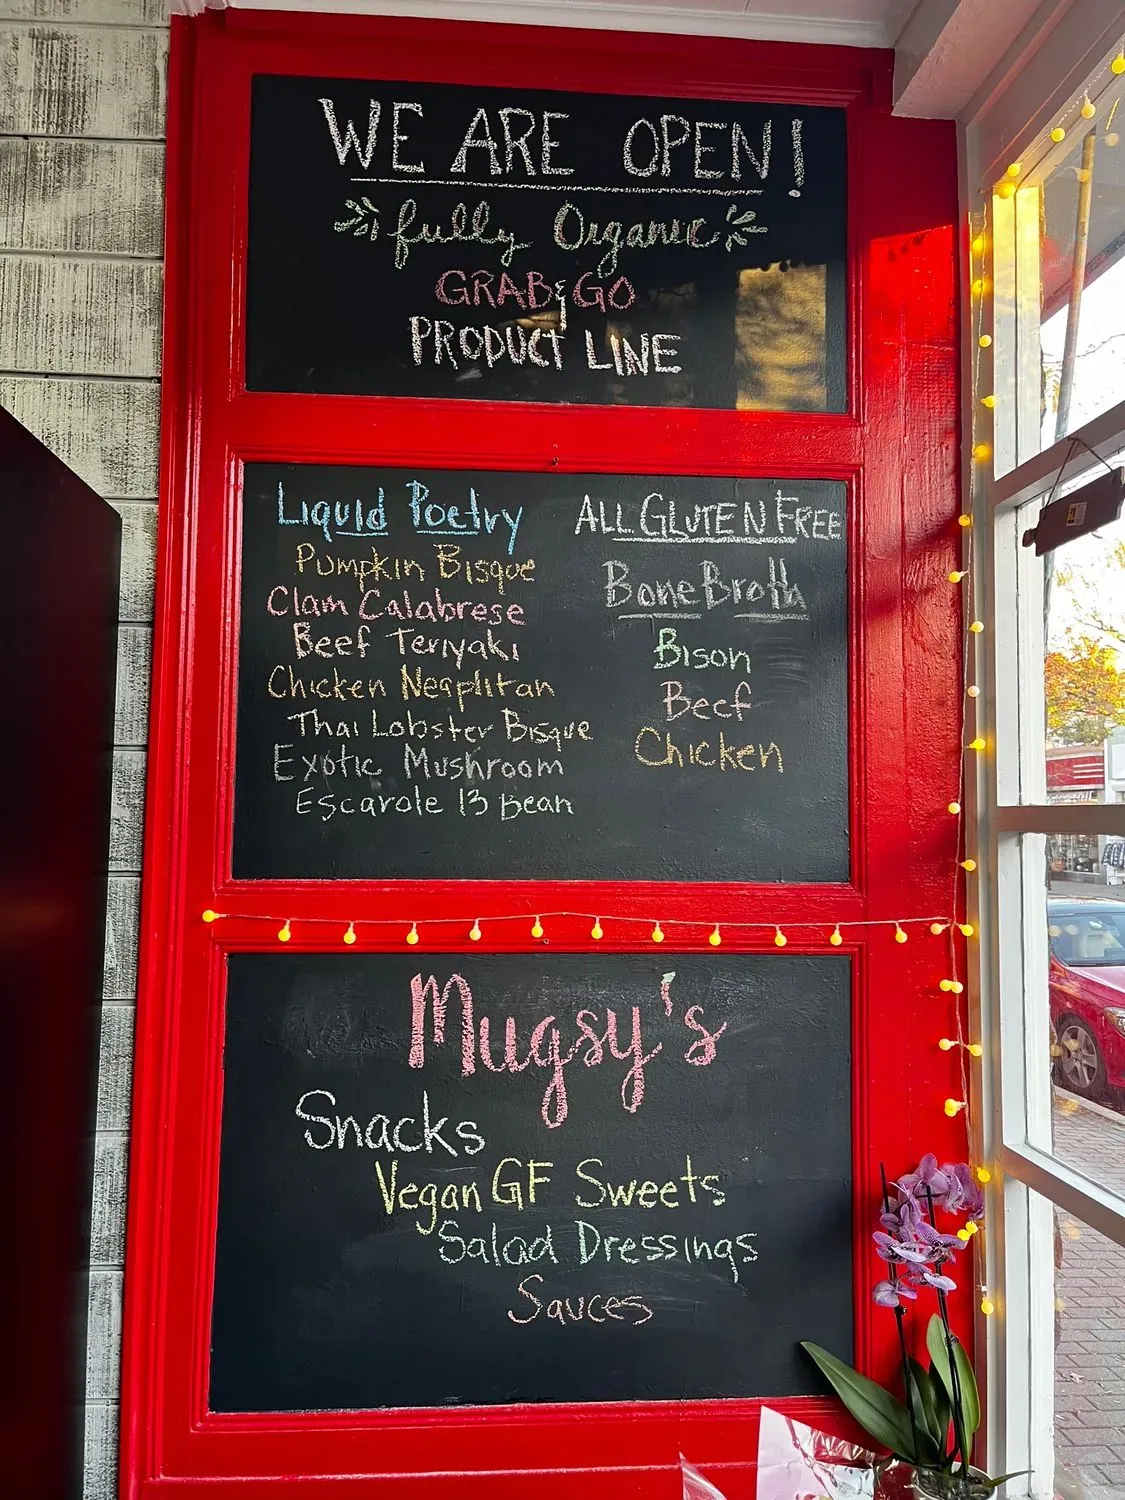 WE ARE OPEN!
fully Organic
GRAB & GO
PRODUCT LINE
Liquid Poetry
Pumpkin Bisque
Clam Calabrese
Beef Teriyaki
Chicken Neaplitan
Thai Lobster Bisque
Exotic Mushroom
Escarole 13 Bean
ALL GLUTEN FREE
Bone Broth
Bison
Beef
Chicken
Mugsy's
Snacks
Vegan GF Sweets
Salad Dressings
Sauces